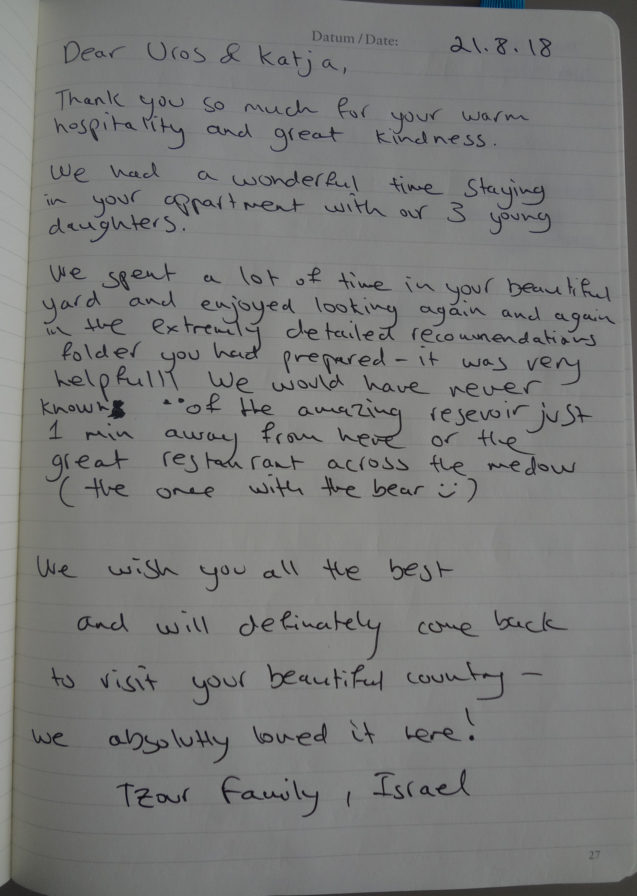 Datum/Date: 21.8.18
Dear Uros & Katja,
Thank you so much for your warm
hospitality and great kindness.
We had a wonderful time staying
in your appartment with our 3 young
daughters.
We spent a lot of time in your beautiful
yard and enjoyed looking again and again
in the extremely detailed recommendations
folder you had prepared - it was very
helpful!! We would have never
known of the amazing resevoir just
1 min away from here or the
great restaurant across the medow
(the once with the bear :))
We wish you all the best
and will definately come back
to visit your beautiful country -
we absolutly loved it here!
Tzour Family, Israel
27